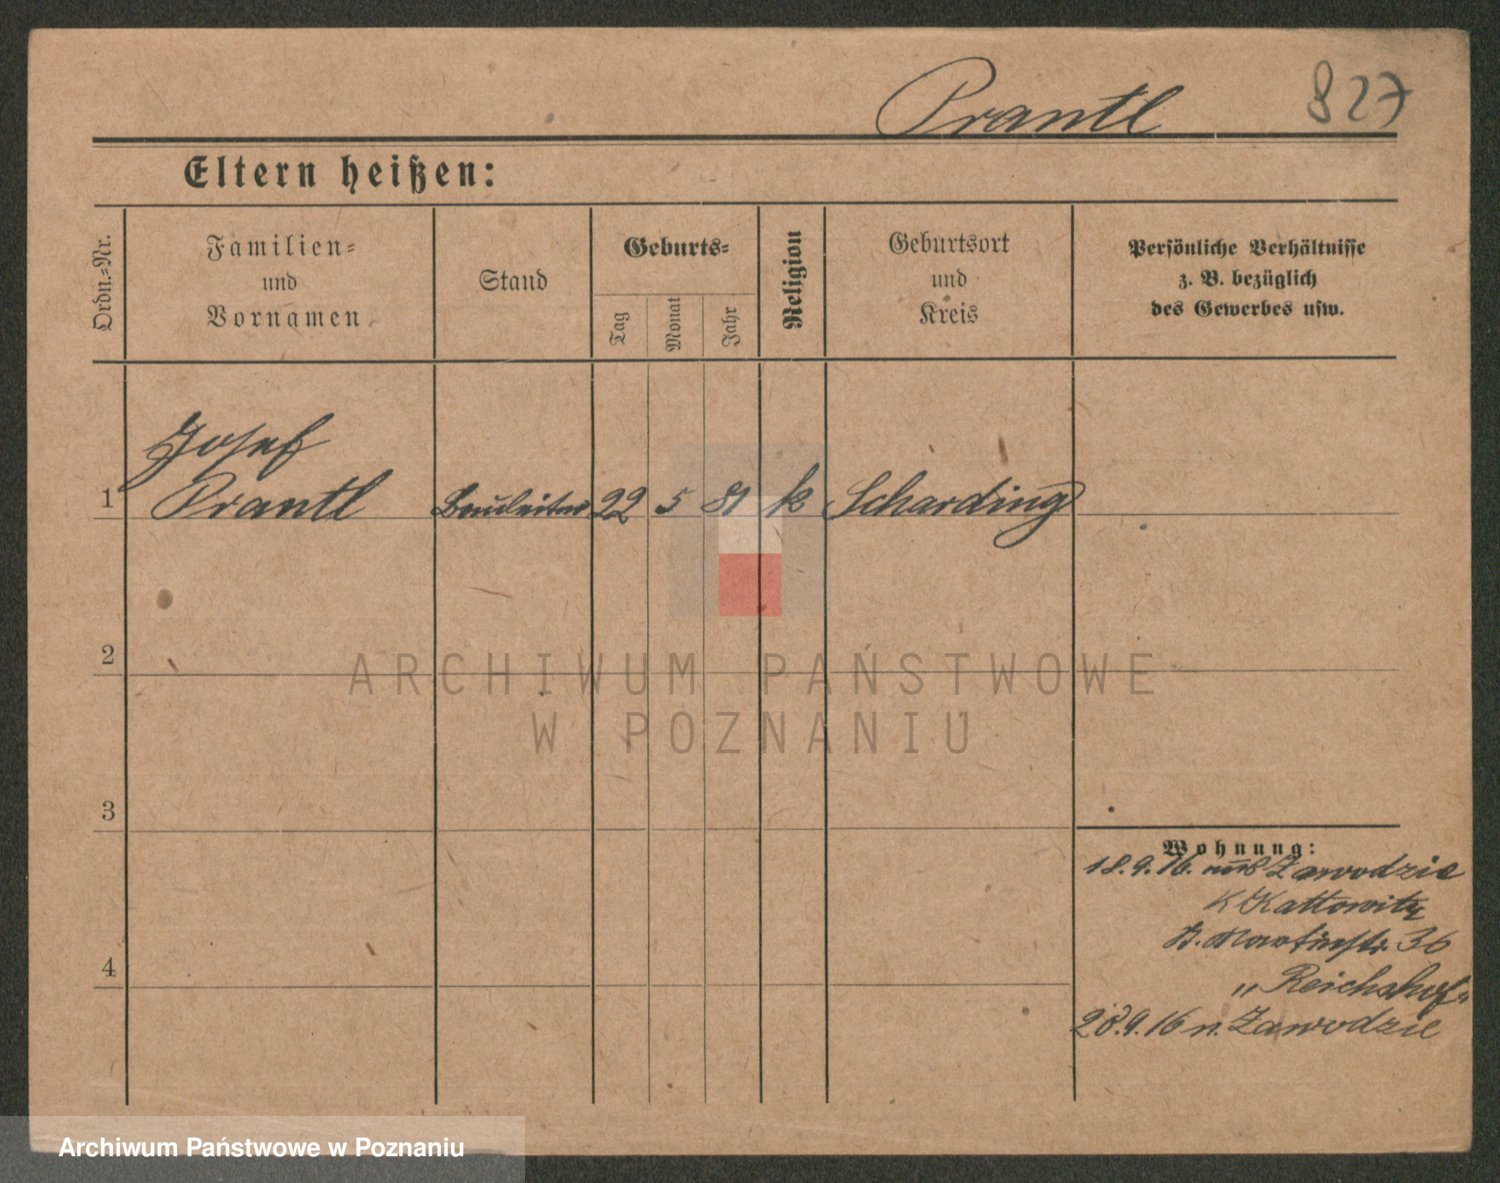 Prantl 827
Eltern heißen:
Ordn.-Nr.
Familien-
und
Vornamen
Stand
Geburts-
Tag
Monat
Jahr
Religion
Geburtsort
und
Kreis
Persönliche Verhältnisse
z. B. bezüglich
des Gewerbes usw.
Josef
1 Prantl Bauleiter 22 5 81 k Scharding
2
3
4
Wohnung:
18.9.16. aus Zawodzie
K Kattowitz
St. Martinstr. 36
"Reichshof"
28.9.16 n. Zawodzie
ARCHIWUM PAŃSTWOWE
W POZNANIU
Archiwum Państwowe w Poznaniu